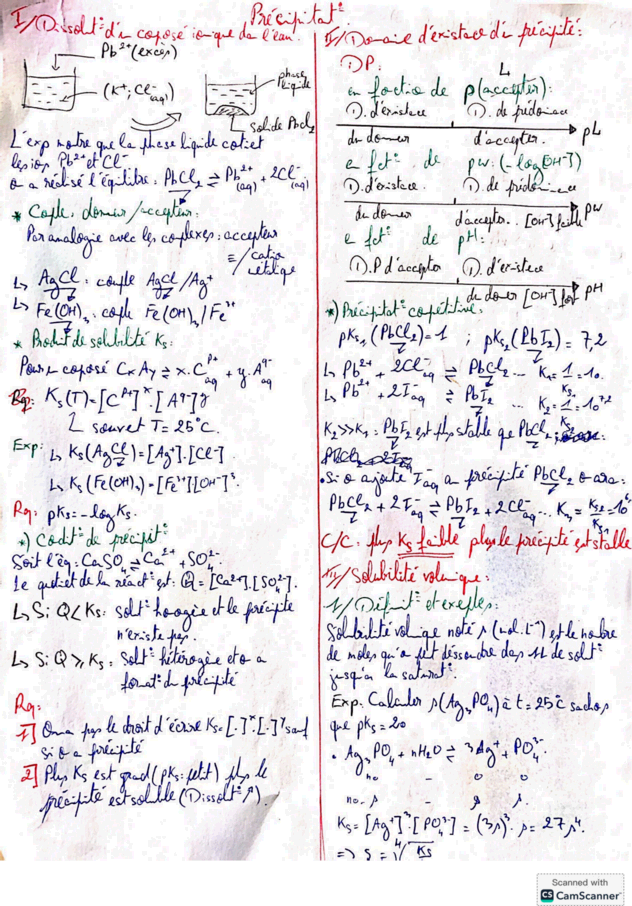 Précipitat°
I/ Dissolt° d'u coposé ionique da l'eau.
Pb²⁺(excès)
(K⁺; Cl⁻(aq))
phase liquide
solide PbCl₂
L'exp motre que la phase liquide cotiet
les ios Pb²⁺ et Cl⁻
o a réalisé l'équilibre: PbCl₂ ⇌ Pb²⁺(aq) + 2Cl⁻(aq)
* Cople, doneur/accepteur:
Par analogie avec les coplexes: accepteur
≡ / catio métalique
↳ AgCl : couple AgCl/Ag⁺
↳ Fe(OH)₃: cople Fe(OH)₃/Fe³⁺
* Produit de solubilité Ks:
Pour u coposé CxAy ⇌ x.C^p+ aq + y.A^q- aq
Rq: Ks(T)=[C^p+]^x.[A^q-]^y
↳ souvet T=25°C.
Exp: ↳ Ks(AgCl)=[Ag⁺].[Cl⁻]
↳ Ks(Fe(OH)₃)=[Fe³⁺][OH⁻]³.
Rq: pKs=-logKs.
*) Codit° de précipit°
Soit l'éq: CaSO₄ ⇌ Ca²⁺ + SO₄²⁻
le quotiet de la réact° est: Q=[Ca²⁺].[SO₄²⁻].
↳ Si Q<Ks: solt° hoogène et le précipite
n'existe pas.
↳ Si Q⩾Ks: Solt° hétérogène et o a
format° du précipité
Rq:
1] On a pas le droit d'écrire Ks=[.]^x[.]^y sauf
si o a précipité
2] Plus Ks est grad(pKs: petit) plus le
précipité est soluble (Dissolt° ↗).
II/ Domaie d'existace du précipité:
①P:
en foctio de p(accepter):
D. d'existace D. de prédoiace
du doneur d'accepter. pL
e fct° de pw: (-log[OH⁻])
D. d'existace. D. de prédoinence
du doneur d'accepter. [OH⁻] faible pw
e fct° de pH:
D.P d'acceptor D. d'existece
du doneur [OH⁻] fort pH
*) Précipitat° copétitive:
pKs₁(PbCl₂)=1 ; pKs₂(PbI₂)=7,2
↳ Pb²⁺ + 2Cl⁻aq ⇌ PbCl₂ ... K₁=1/Ks₁=10.
↳ Pb²⁺ + 2I⁻aq ⇌ PbI₂ ... K₂=1/Ks₂=10⁷·²
K₂>>K₁: PbI₂ est plus stable que PbCl₂
• Si o ajoute I⁻aq a précipité PbCl₂ o ara:
PbCl₂ + 2I⁻aq ⇌ PbI₂ + 2Cl⁻aq ...
C/C: plus Ks faible plus le précipité est stable
III/ Solubilité volumique:
1/ Définit° et exeples:
Solubilité voluique noté s (mol.L⁻¹) est le nombre
de moles qu'o peut dissoudre das 1L de solt°
jusqu'a la saturat°.
Exp: Calculer s(Ag₃PO₄) à t=25°C sachas
que pKs=20
• Ag₃PO₄ + nH₂O ⇌ 3Ag⁺ + PO₄³⁻
no - o o
no-s - s s.
Ks=[Ag⁺]³[PO₄³⁻]=(3s)³.s=27s⁴.
=> s = ⁴√Ks
Scanned with
CS CamScanner